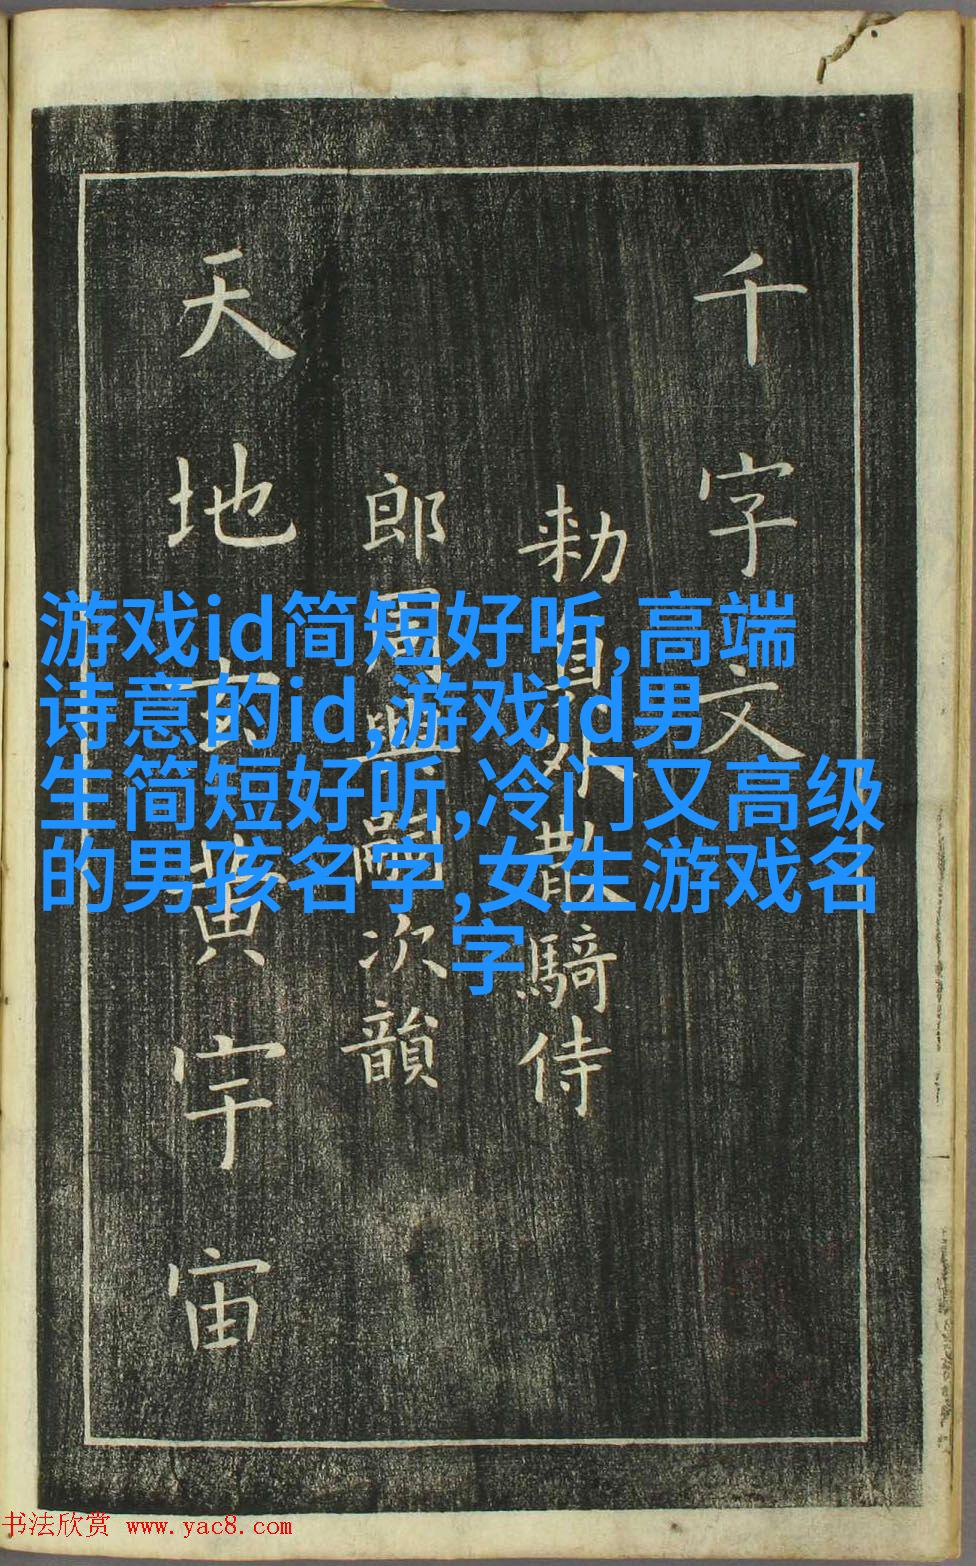 千字文
勑貟外散騎侍
郎周興嗣次韻
天地玄黄宇宙
游戏id简短好听,高端
诗意的id,游戏id男
生简短好听,冷门又高级
的男孩名字,女生游戏名
字
书法欣赏 www.yac8.com